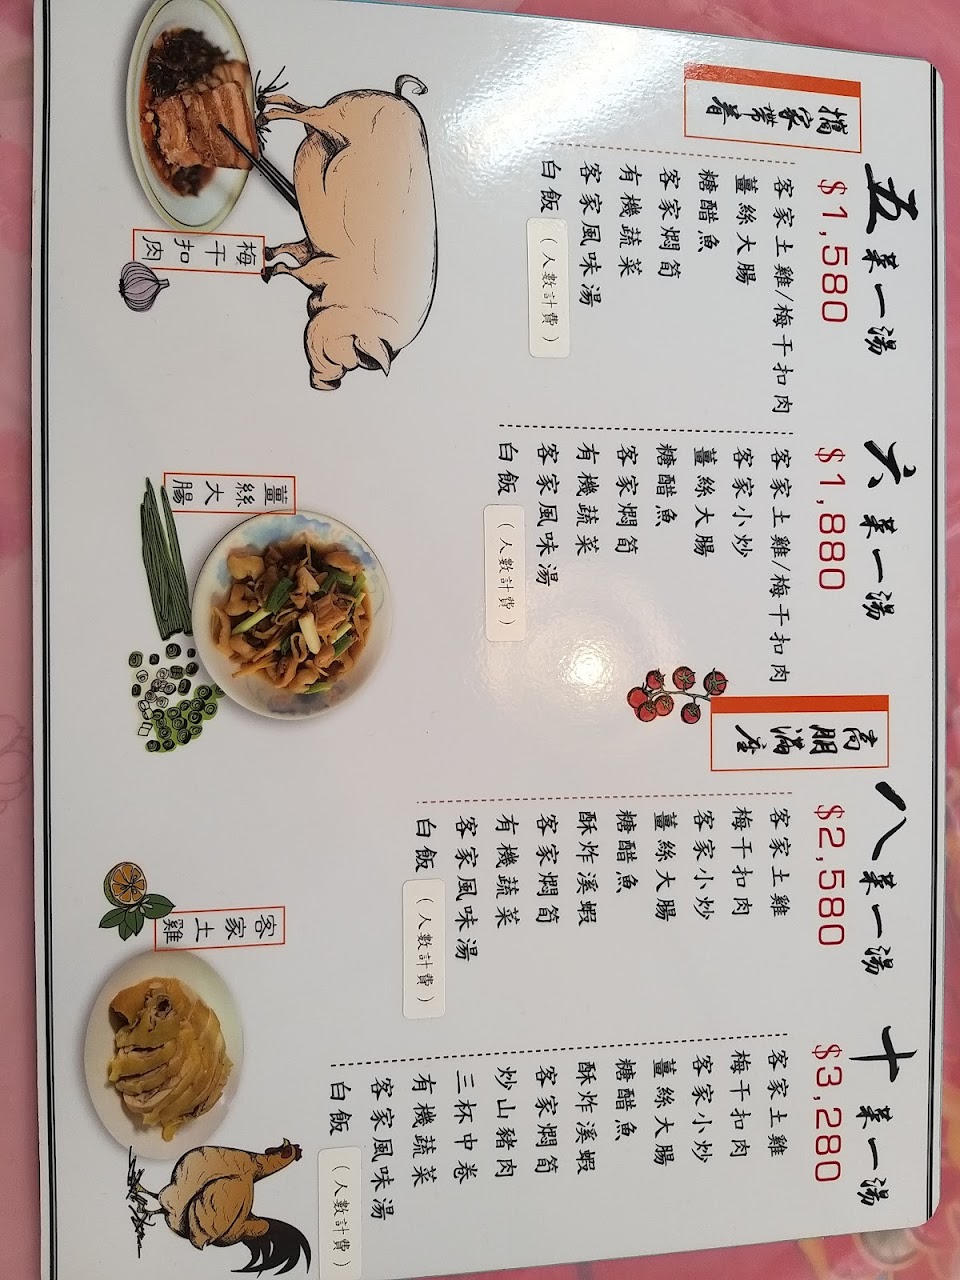 攜家帶眷
五菜一湯
$1,580
客家土雞/梅干扣肉
薑絲大腸
糖醋魚
客家燜筍
有機蔬菜
客家風味湯
白飯（人數計費）
六菜一湯
$1,880
客家土雞/梅干扣肉
客家小炒
薑絲大腸
糖醋魚
客家燜筍
有機蔬菜
客家風味湯
白飯（人數計費）
高朋滿座
八菜一湯
$2,580
客家土雞
梅干扣肉
客家小炒
薑絲大腸
糖醋魚
酥炸溪蝦
客家燜筍
有機蔬菜
客家風味湯
白飯（人數計費）
十菜一湯
$3,280
客家土雞
梅干扣肉
客家小炒
薑絲大腸
糖醋魚
酥炸溪蝦
客家燜筍
炒山豬肉
三杯中卷
有機蔬菜
客家風味湯
白飯（人數計費）
梅干扣肉
薑絲大腸
客家土雞